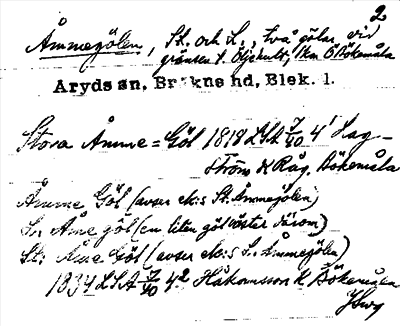 2
Åmmegölen, St. och L., två gölar vid
gränsen t. Öljehult, 1km Ö Bökemåla
Aryds sn. Bräkne hd, Blek. l.
Stora Åmme=Göl 1818 LSA 7/40 4¹ Hag-
ström K Råg. Bökemåla
Åmme Göl (avser ek:s St. Åmmegölen)
L. Åme göl (en liten göl väster därom)
St. Åme Göl (avser ek:s L. Åmmegölen)
1834 LSA 7/40 4² Håkansson K Bökemåla